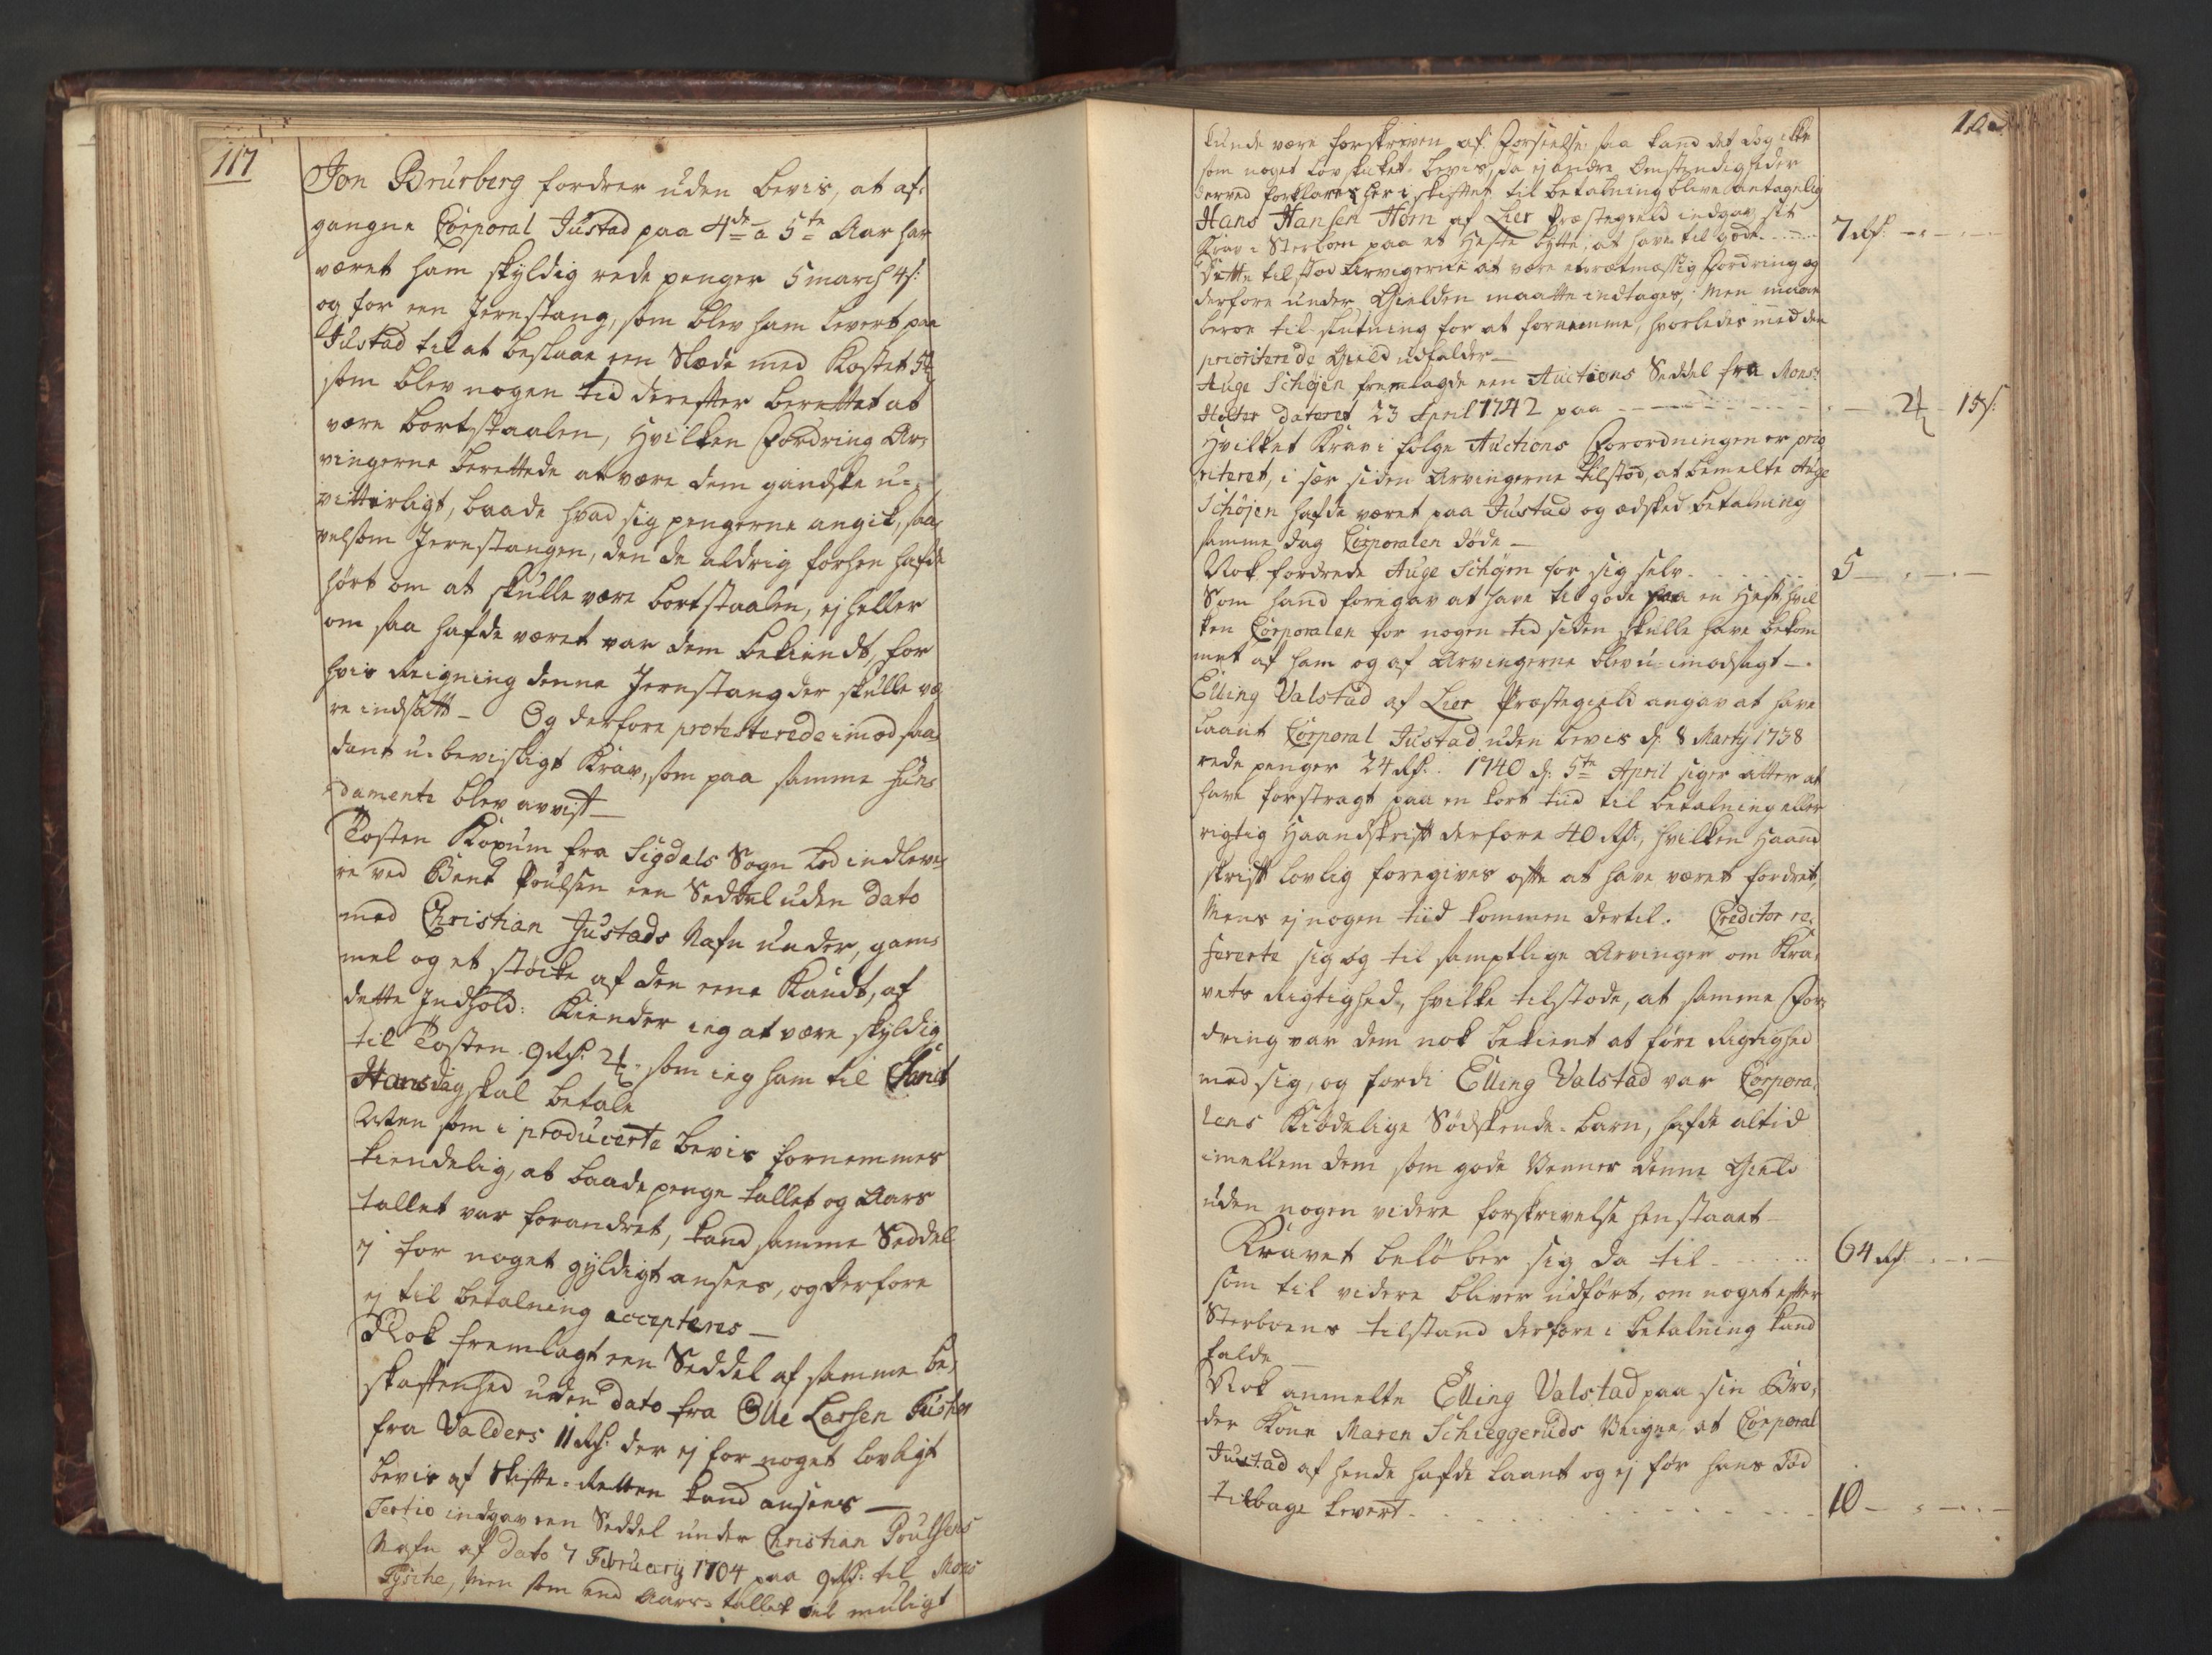 117
Jon Brurberg fordrer uden bevis, at af-
gangne Corporal Justad paa 4de à 5te Aar har
været ham skyldig rede penger 5 march 4 s:
og for een Jernstang, som blev ham levert paa
Justad til at beslaae een Slæde med kostet
som blev nogen tid derefter berettet at
være bortstaalen, hvilken fordring Ar-
vingerne berettede at være dem gandske u-
vitterligt, baade hvad sig pengerne angik, saa
velsom Jernstangen, den de aldrig forhen hafde
hört om at skulle være bortstaalen, ej heller
om saa hafde været var dem bekiendt, for
hvis Reigning denne Jernstang der skulle væ-
re indsatt - Og derfore protesterede imod saa
dant u-bevisligt Krav, som paa samme Fun-
damente blev avvist -
Tosten Kopum fra Sigdals Sogn lod indleve-
re ved Bent Poulsen een Seddel uden dato
med Christian Justads Nafn under, gam-
mel og et støcke af den eene Kandt, af
dette Indhold: Kiender ieg at være skyldig
til Tosten 9 Rd: 2 som ieg ham til Sanct
Hansdag skal betale
Men som i producerte bevis fornemmes
kiendelig, at baade penge tallet og Aars
tallet var forandret, kand samme Seddel
ej for noget gyldigt ansees, og derfore
ej til betalning accepteres -
Nok fremlagt een Seddel af samme be-
skaffenhed uden dato fra Olle Larsen
fra Valders 11 Rd: der ej for noget lovligt
bevis af Skifte-Retten kand ansees -
Tertio indgav een Seddel under Christian Poulsens
Nafn af dato 7 February 1704 paa 9 Rd: til Mons
men som end Aars-tallet vel muligt
kunde være forskreven af forseelse, saa kand det dog ikke
som noget lov skicket bevis, da ej andre Omstendigheder
derved forklares her i skiftet til betalning blive antagelig
Hans Hansen Horn af Lier Præstegield indgav sit
Krav i Sterboen paa et Heste bytte, at have til gode 7 Rd: - -
Dette tilstod Arvigerne at være et rætmæssig fordring og
derfore under Gielden maatte indtages, Men maae
beroe til slutning for at fornemme, hvorledes med den
prioriterede Gield udfalder -
Auge Schöjen fremlagde een Auctions Seddel fra Monsr
Holter dateret 23 April 1742 paa - 2 - 15 s:
Hvilket Krav i følge Auctions Forordningen er prio
riteret, i sær siden Arvingerne tilstod, at bemelte Auge
Schöjen hafde været paa Justad og ædsket betalning
samme dag Corporalen döde -
Nok fordrede Auge Schöjen for sig selv 5 - - -
Som hand foregav at have til gode paa en Hest, hvil
ken Corporalen for nogen tid siden skulle have bekom
met af ham og af Arvingerne blev u-imodsagt -
Elling Valstad af Lier Præstegield angav at have
laant Corporal Justad uden bevis d: 8 Marty 1738
rede penger 24 Rd: 1740 d: 5te April siger atter at
have forstragt paa en kort tiid til betalning eller
rigtig Haandskrift derfore 40 Rd:, hvilken Haand
skrift lovlig foregives ofte at have været fordret,
Mens ej nogen tiid kommen dertil. Creditor re-
fererte sig og til samptlige Arvinger om Kra-
vets Rigtighed, hvilke tilstode, at samme For-
dring var dem nok bekient at føre Rigtighed
med sig, og fordi Elling Valstad var Corpora-
lens Kiødelige Södskende-barn, hafde altid
imellem dem som gode Venner denne Gield
uden nogen videre forskrivelse henstaaet -
Kravet belöber sig da til 64 Rd: - -
som til videre bliver udført, om noget efter
Sterboens tilstand derfore i betalning kand
falde -
Nok anmelte Elling Valstad paa sin Bro-
der Kone Maren Schieggeruds Veigne, at Corporal
Justad af hende hafde laant og ej før hans död
tilbage levert 10 - - -